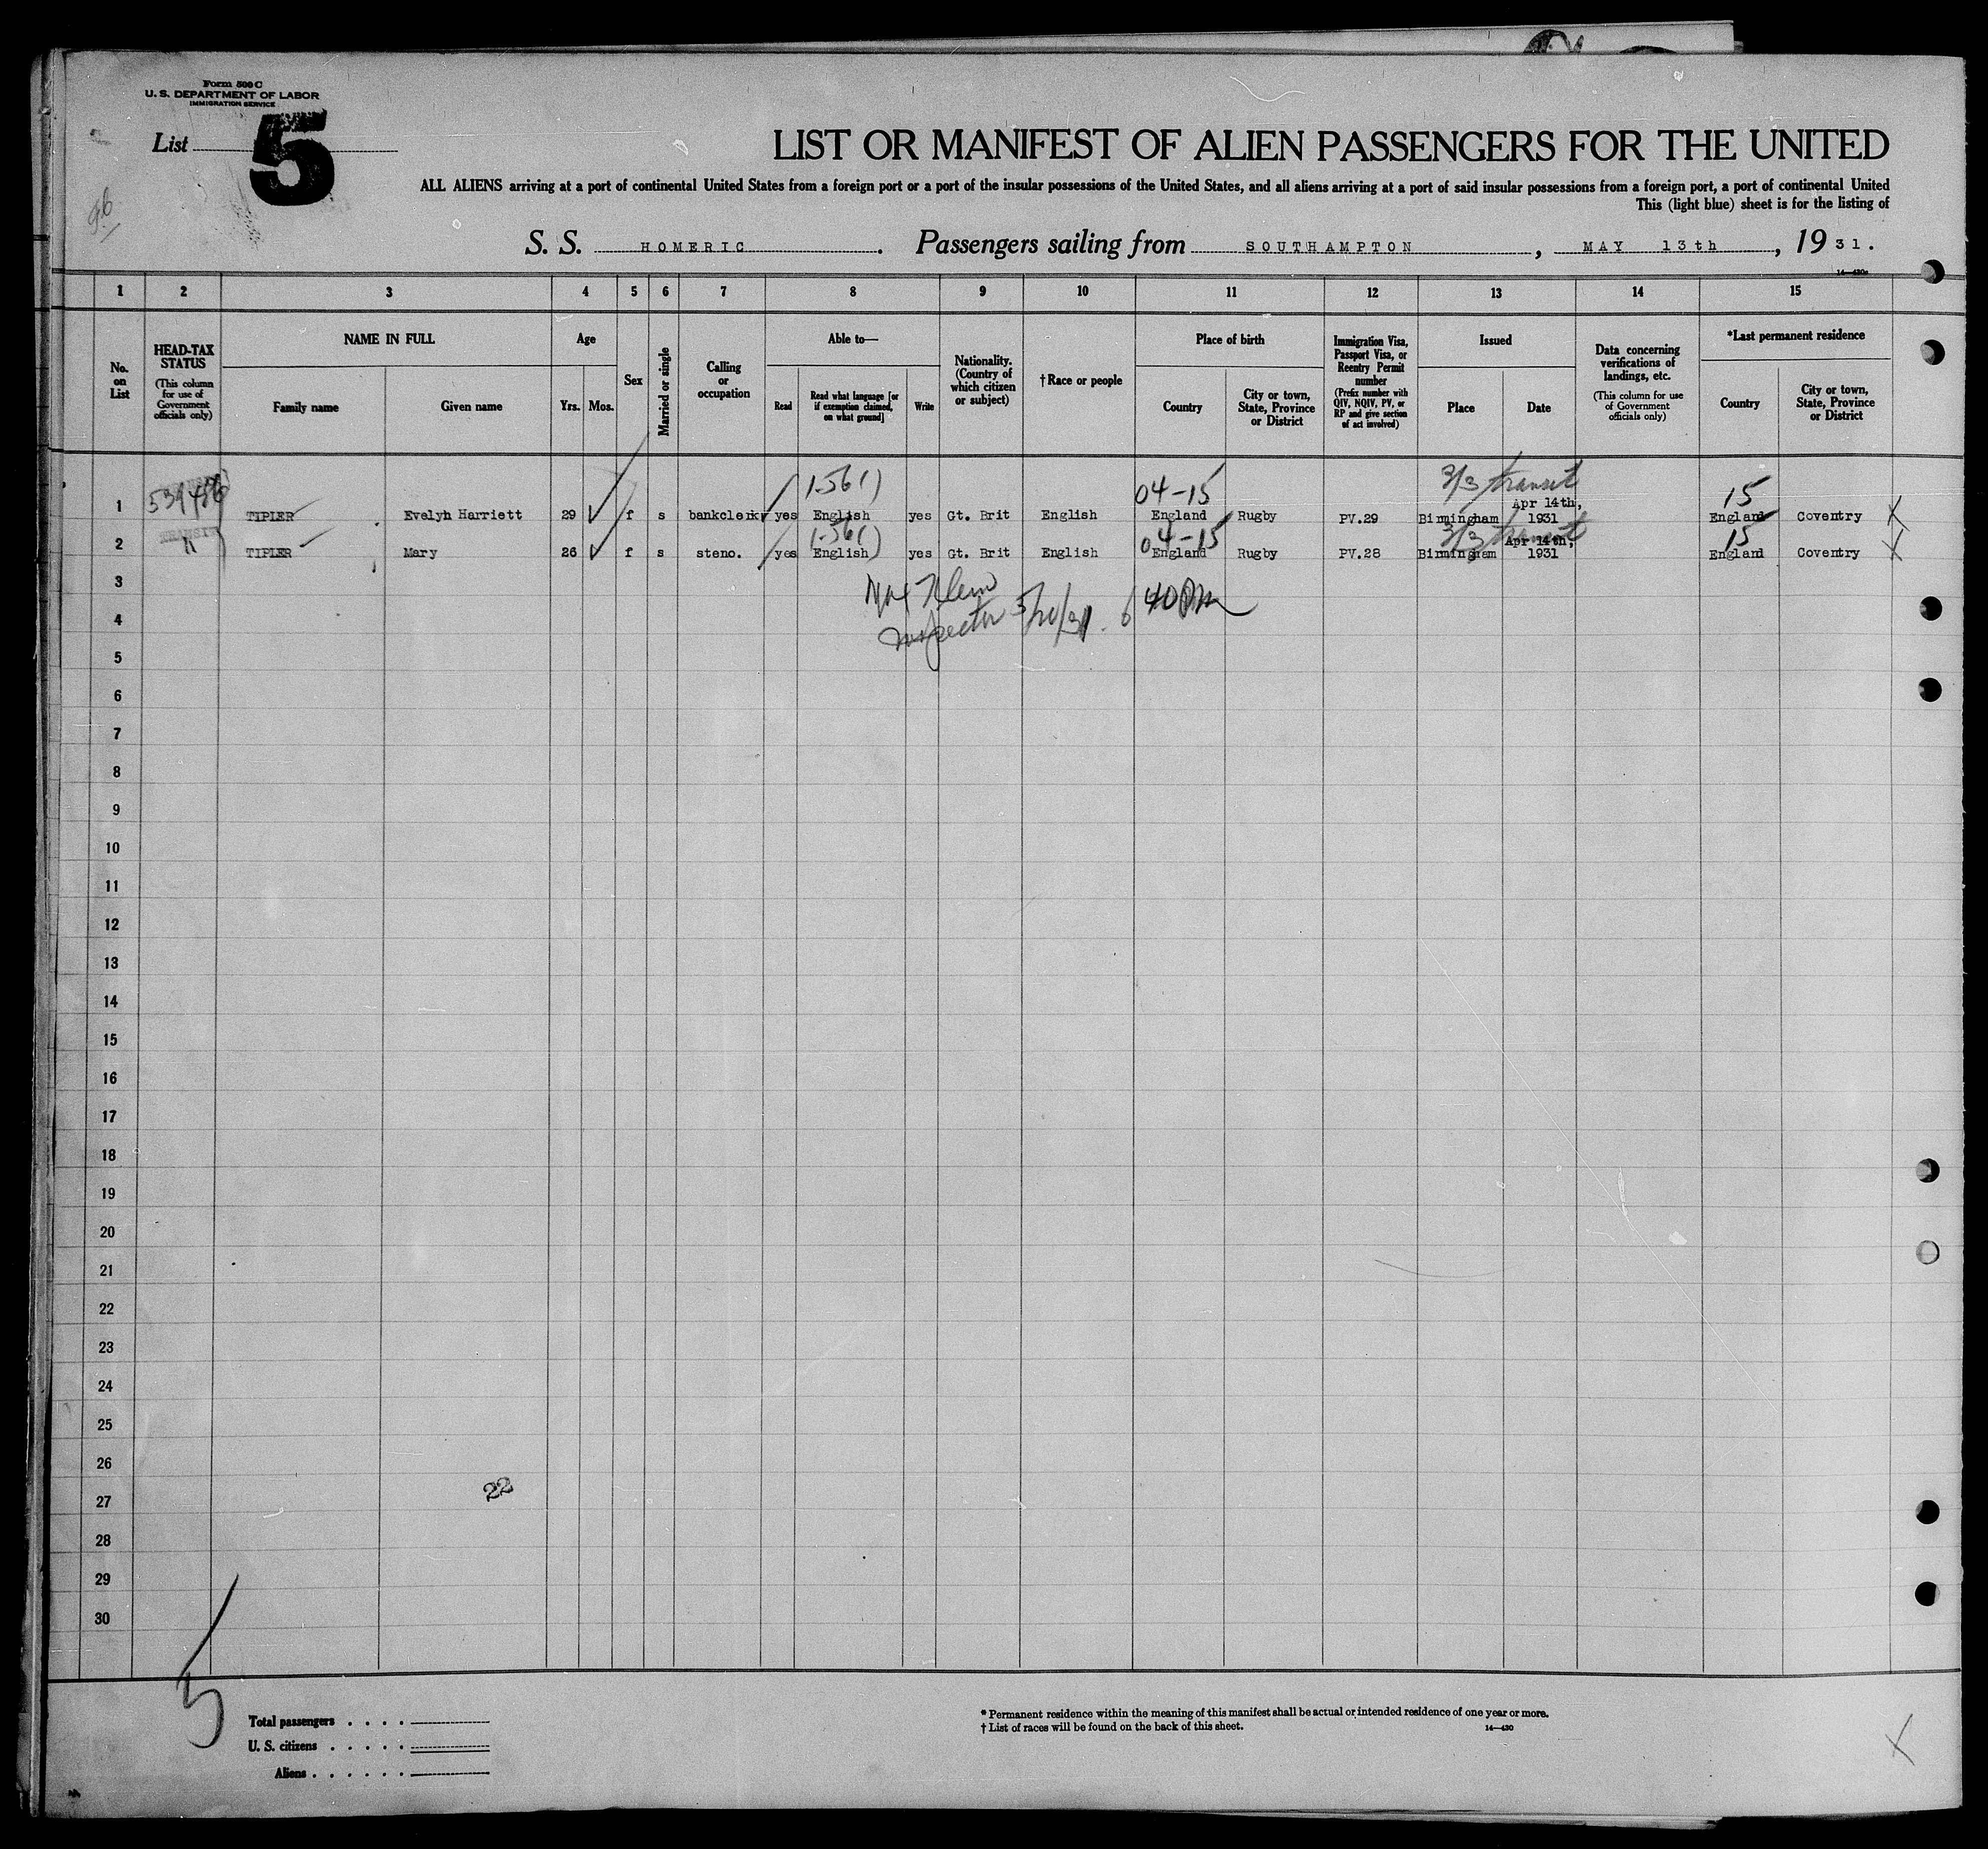 Form 500 C
U. S. DEPARTMENT OF LABOR
IMMIGRATION SERVICE
List 5
LIST OR MANIFEST OF ALIEN PASSENGERS FOR THE UNITED
ALL ALIENS arriving at a port of continental United States from a foreign port or a port of the insular possessions of the United States, and all aliens arriving at a port of said insular possessions from a foreign port, a port of continental United
This (light blue) sheet is for the listing of
S. S. HOMERIC. Passengers sailing from SOUTHAMPTON, MAY 13th, 1931.
1 2 3 4 5 6 7 8 9 10 11 12 13 14 15
No. on List
HEAD-TAX STATUS (This column for use of Government officials only)
NAME IN FULL
Family name
Given name
Age
Yrs. Mos.
Sex
Married or single
Calling or occupation
Able to—
Read
Read what language [or if exemption claimed, on what ground]
Write
Nationality. (Country of which citizen or subject)
† Race or people
Place of birth
Country
City or town, State, Province or District
Immigration Visa, Passport Visa, or Reentry Permit number (Prefix number with QIV, NQIV, PV, or RP and give section of act involved)
Issued
Place
Date
Data concerning verifications of landings, etc. (This column for use of Government officials only)
*Last permanent residence
Country
City or town, State, Province or District
04-15 3/3 transit 15
1 TIPLER Evelyn Harriett 29 f s bankclerk yes English yes Gt. Brit English England Rugby PV.29 Birmingham Apr 14th, 1931 England Coventry
04-15 3/3 transit 15
2 TIPLER Mary 26 f s steno. yes English yes Gt. Brit English England Rugby PV.28 Birmingham Apr 14th, 1931 England Coventry
3
Inspector 5/20/31 6 40 PM
4
5
6
7
8
9
10
11
12
13
14
15
16
17
18
19
20
21
22
23
24
25
26
22
27
28
29
30
5
Total passengers . . . .
U. S. citizens . . . . .
Aliens . . . . . .
* Permanent residence within the meaning of this manifest shall be actual or intended residence of one year or more.
† List of races will be found on the back of this sheet. 14—430